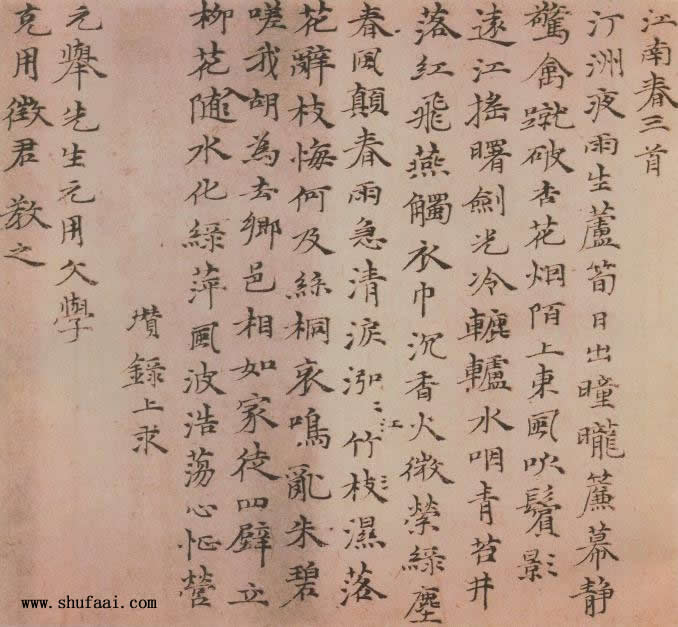 江南春三首
汀洲夜雨生蘆筍日出曈曨簾幕靜
驚禽蹴破杏花烟陌上東風吹鬢影
遠江搖曙劍光冷轆轤水咽青苔井
落紅飛燕觸衣巾沉香火微縈綠塵
春風顛春雨急清淚泓〻江竹枝濕落
花辭枝悔何及絲桐哀鳴亂朱碧
嗟我胡為去鄉邑相如家徒四壁立
柳花隨水化綠萍風波浩蕩心怔營
瓚錄上求
元舉先生元用文學
克用徵君教之
www.shufaai.com